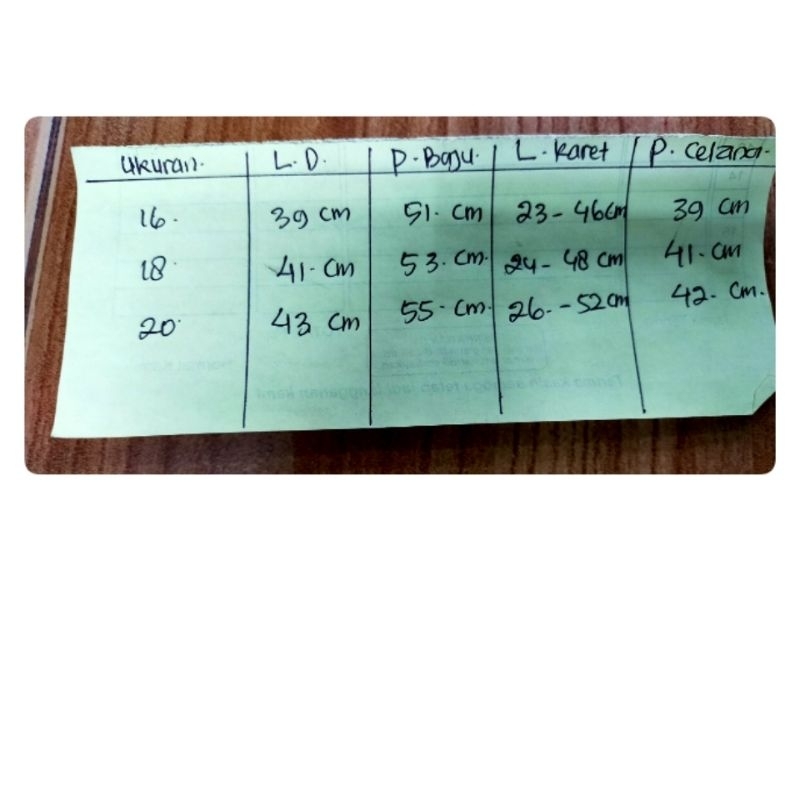 Ukuran. L.D. P.Baju. L.Karet P. Celana.
16. 39 cm 51. cm 23 - 46cm 39 cm
18. 41. cm 53. cm. 24 - 48 cm 41. cm
20. 43 cm 55. cm. 26. - 52cm 42. cm.
Terima kasih semoga telah jadi langganan kami